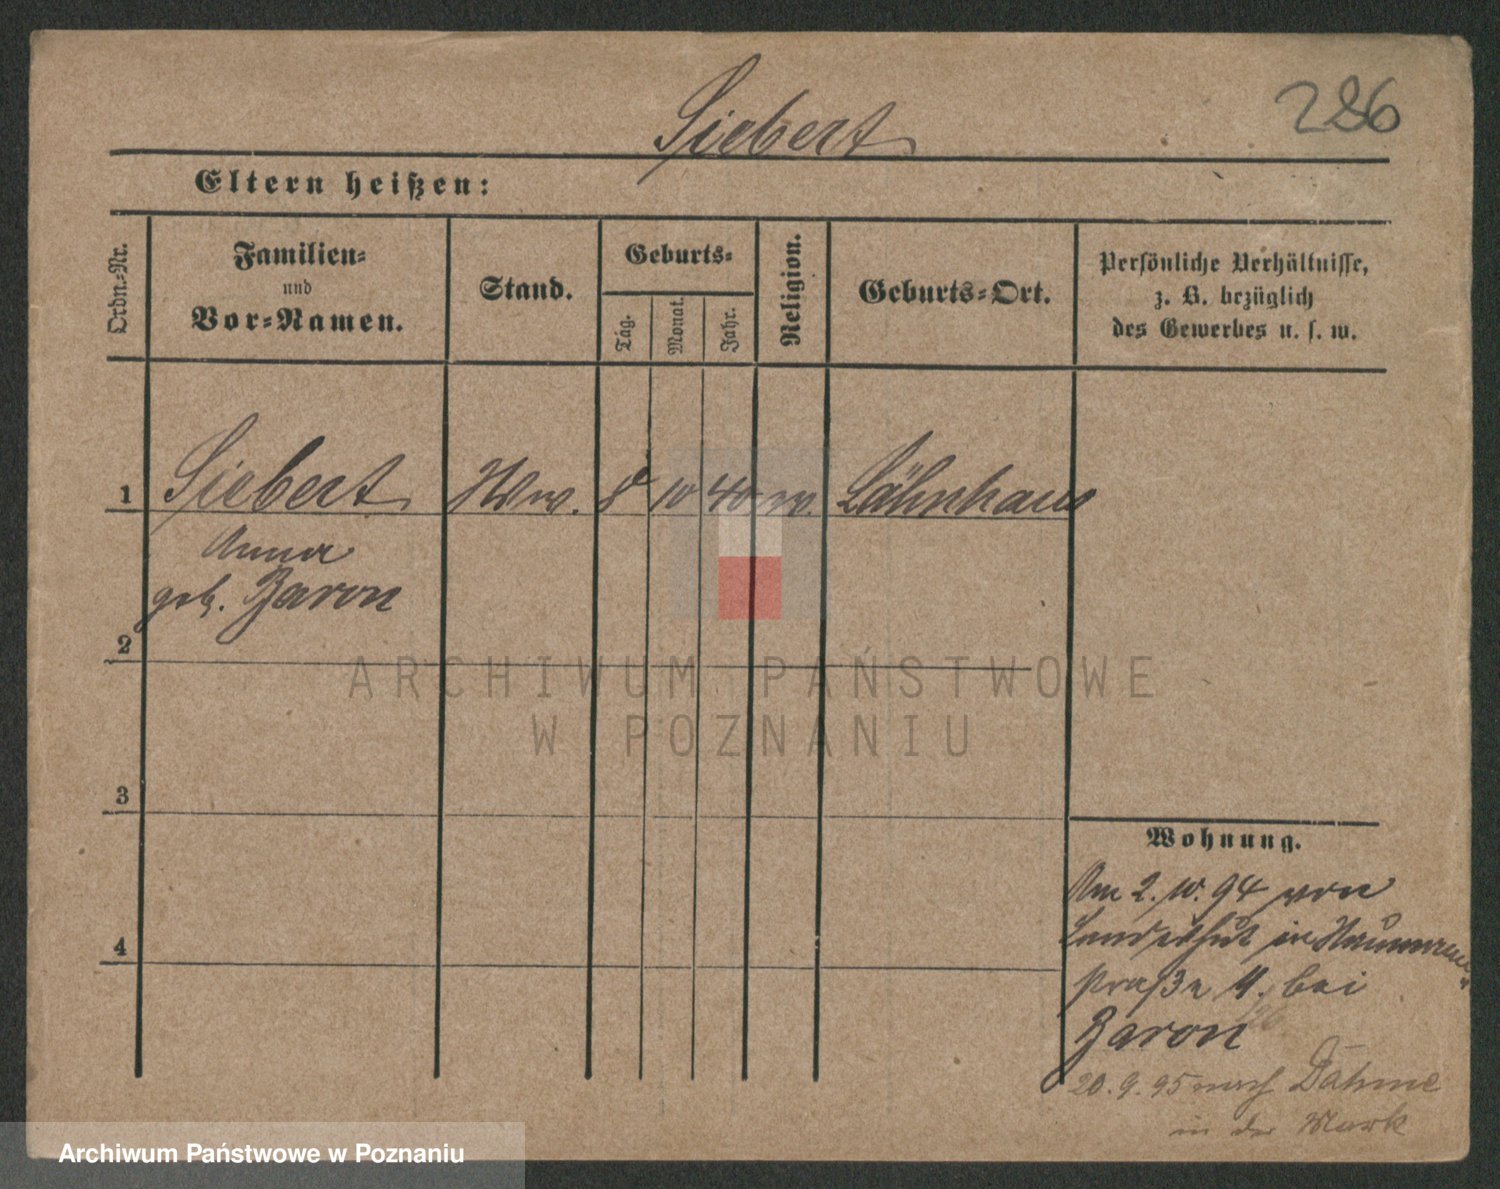 Siebert
286
Eltern heißen:
Ordn.-Nr.
Familien-
und
Vor-Namen.
Stand.
Geburts-
Tag.
Monat.
Jahr.
Religion.
Geburts-Ort.
Persönliche Verhältnisse,
z. B. bezüglich
des Gewerbes u. s. w.
1 Siebert Ww. 8 10 40 Lähnhaus
Anna
geb. Baron
2
3
4
Wohnung.
Am 2. 10. 94 von
Landeshut in Naumann-
straße 4. bei
Baron
20. 9. 95 nach Dahme
in der Mark
ARCHIWUM PAŃSTWOWE
W POZNANIU
Archiwum Państwowe w Poznaniu